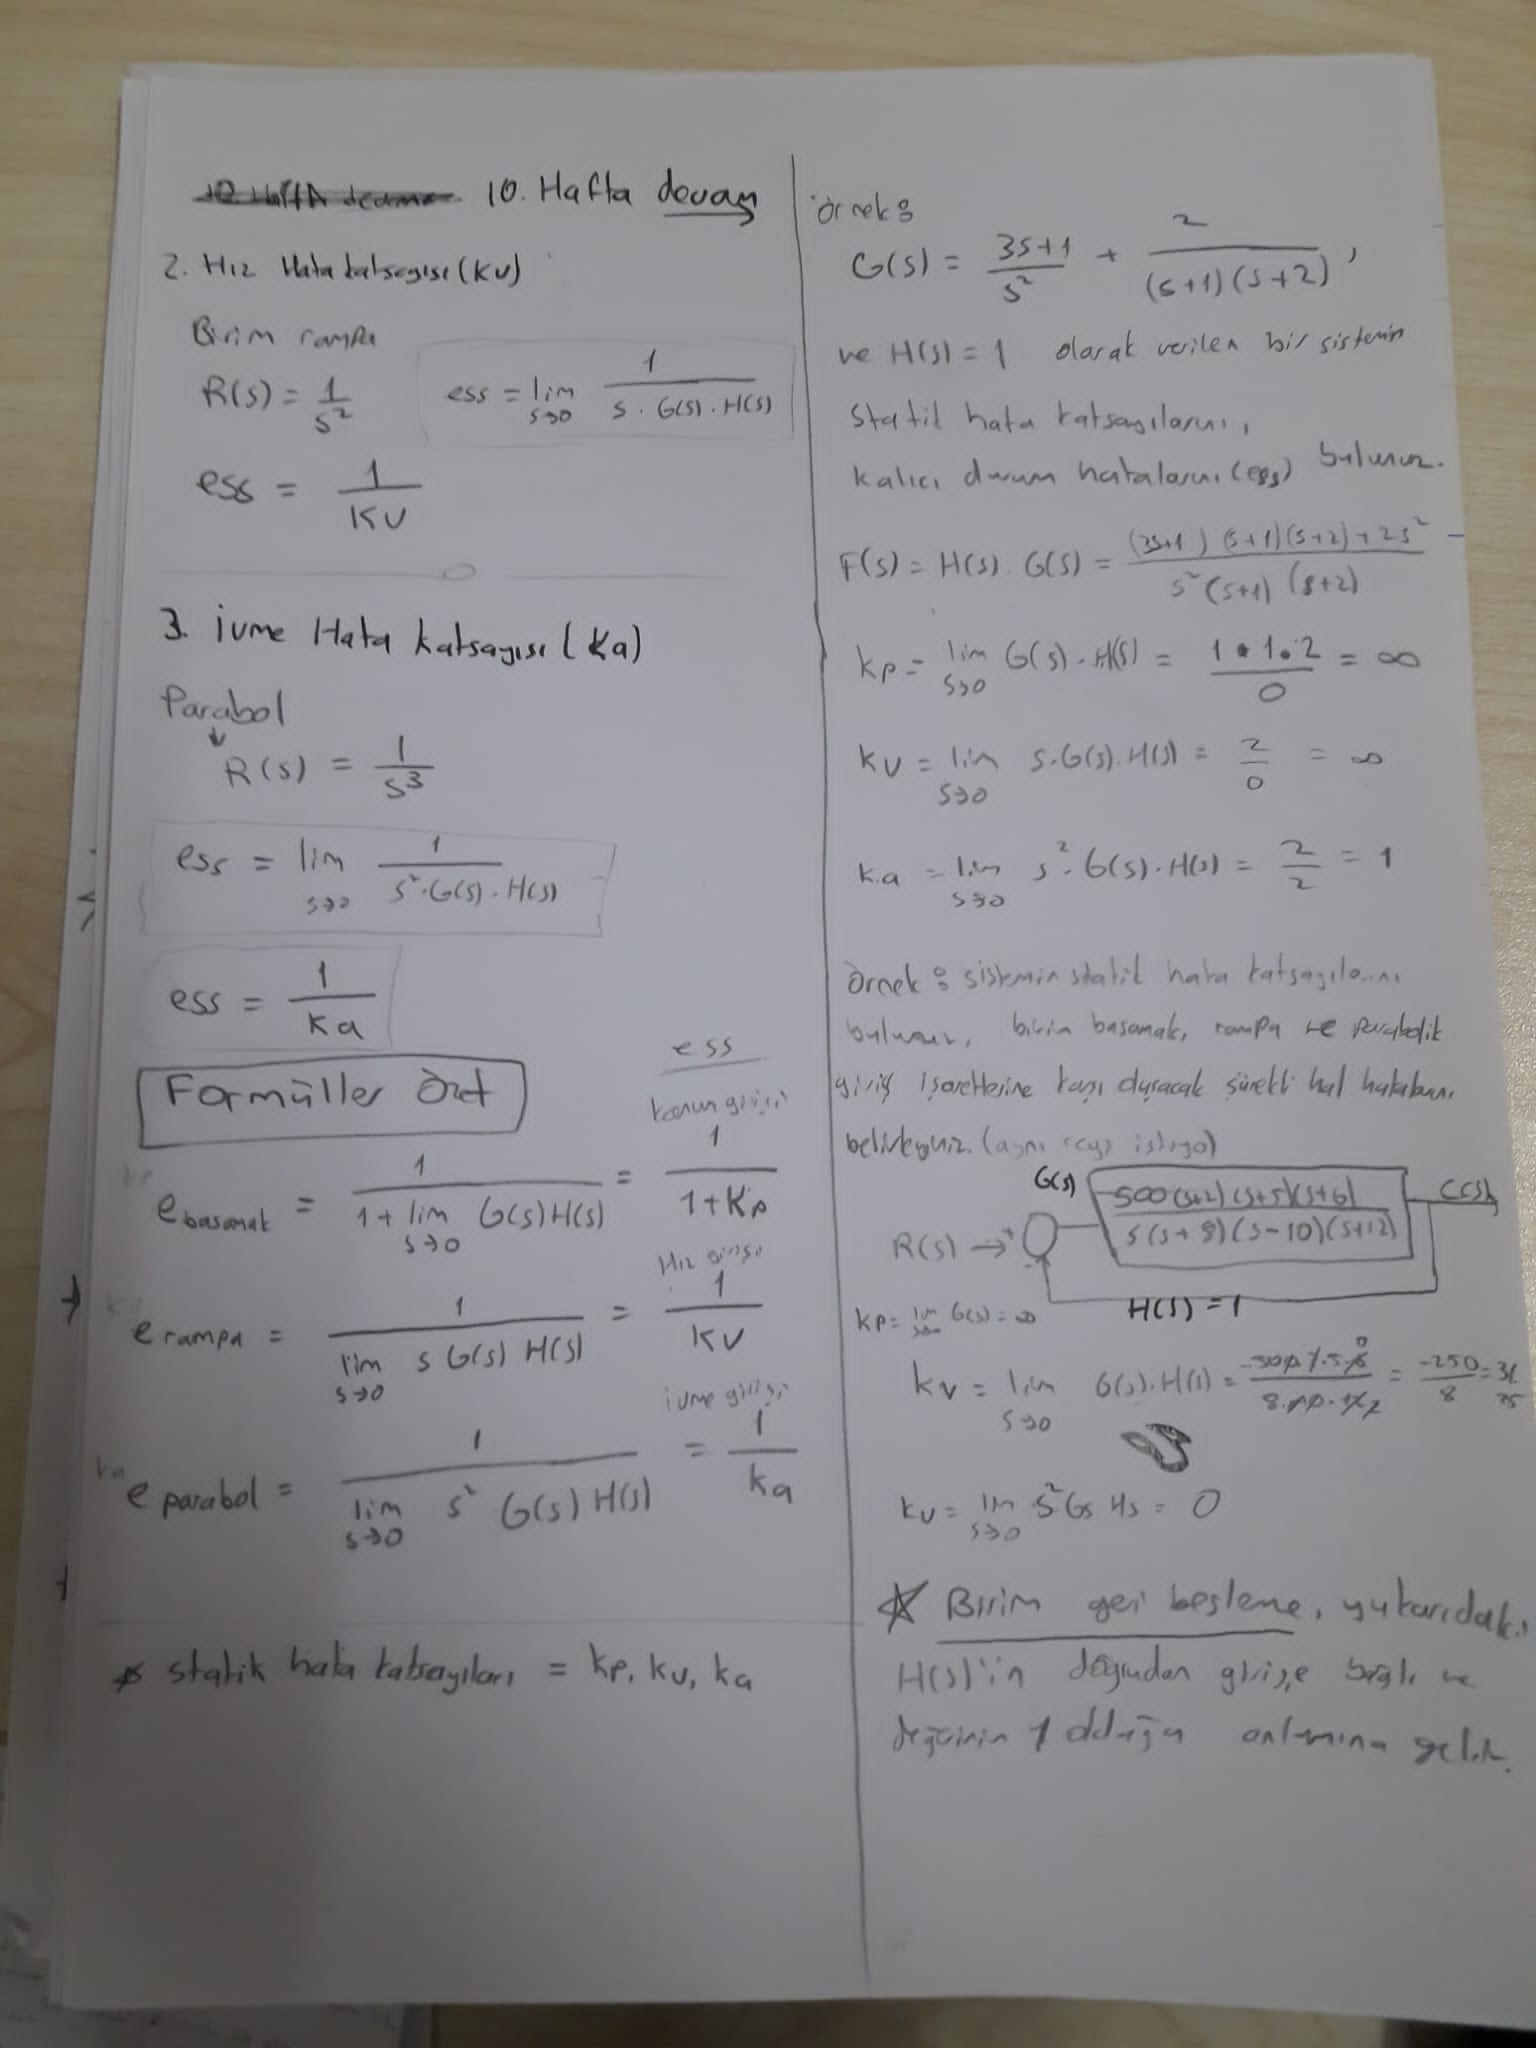 10. Hafta devam
2. Hız Hata katsayısı (Kv)
Birim rampa
R(s) = 1/s²
ess = lim s→0 1/(s · G(s) · H(s))
ess = 1/Kv
3. ivme Hata katsayısı (Ka)
Parabol
↓
R(s) = 1/s³
ess = lim s→0 1/(s² · G(s) · H(s))
ess = 1/Ka
Formüller Özet
ess
e basamak = 1/(1 + lim s→0 G(s) H(s)) = 1/(1+Kp)
Hız girişi
e rampa = 1/(lim s→0 s G(s) H(s)) = 1/Kv
ivme girişi
e parabol = 1/(lim s→0 s² G(s) H(s)) = 1/ka
* statik hata katsayıları = kp, kv, ka
örnek:
G(s) = (3s+1)/s² + 2/((s+1)(s+2)),
ve H(s) = 1 olarak verilen bir sistemin
statik hata katsayılarını,
kalıcı durum hatalarını (ess) bulunuz.
F(s) = H(s) · G(s) = ((3s+1)(s+1)(s+2)+2s²)/(s²(s+1)(s+2))
kp = lim s→0 G(s) · H(s) = (1·1·2)/0 = ∞
kv = lim s→0 s·G(s)·H(s) = 2/0 = ∞
ka = lim s→0 s²·G(s)·H(s) = 2/2 = 1
örnek: sistemin statik hata katsayılarını
bulunuz, birim basamak, rampa ve parabolik
giriş işaretlerine karşı sürekli hal hatalarını
belirleyiniz. (aynı şeyi istiyo)
G(s) 500(s+2)(s+5)(s+6)/(s(s+8)(s-10)(s+12)) C(s)
R(s) → +
H(s) = 1
kp = lim G(s) = ∞
kv = lim s→0 G(s)·H(s) = = -250/8 =
kv = lim s→0 s² Gs Hs = 0
☆ Birim geri besleme, yukarıdaki
H(s)'in doğrudan girişe bağlı ve
değerinin 1 olduğu anlamına gelir.